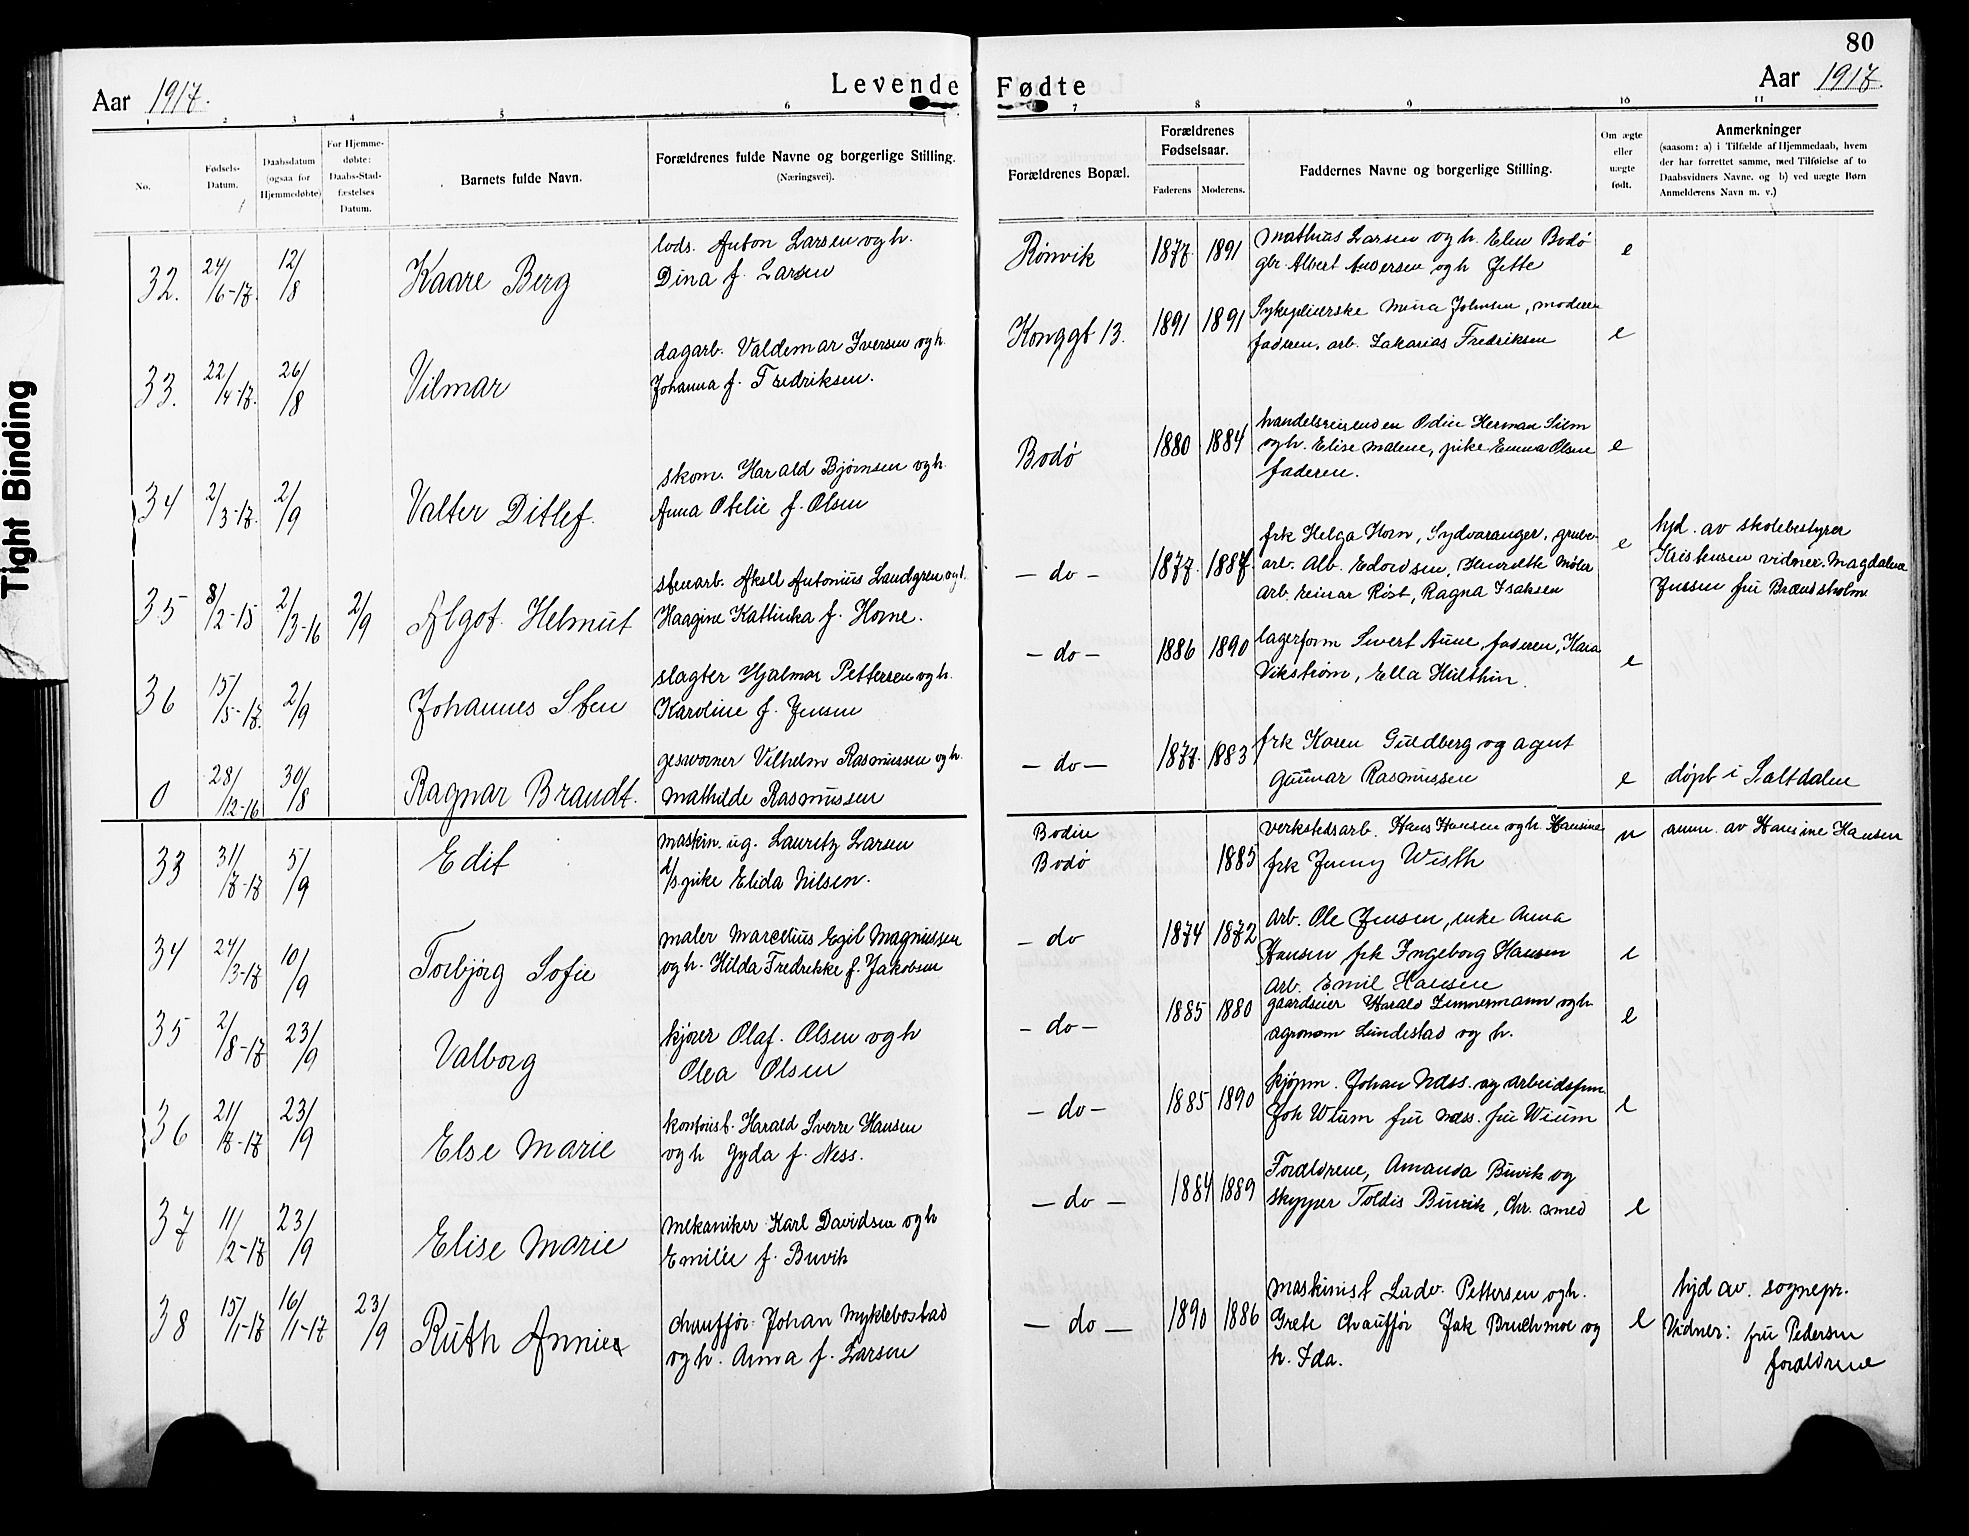 Tight Binding
80
Aar 1917.
Levende Fødte
Aar 1917.
1 2 3 4 5 6 7 8 9 10 11
No.
Fødsels-
Datum.
Daabsdatum
(ogsaa for
Hjemmedøbte)
For Hjemme-
døbte:
Daabs-Stad-
fæstelses
Datum.
Barnets fulde Navn.
Forældrenes fulde Navne og borgerlige Stilling.
(Næringsvei).
Forældrenes Bopæl.
Forældrenes
Fødselsaar.
Faderens. Moderens.
Faddernes Navne og borgerlige Stilling.
Om ægte
eller
uægte
født.
Anmerkninger
(saasom: a) i Tilfælde af Hjemmedaab, hvem
der har forrettet samme, med Tilføielse af to
Daabsvidners Navne, og b) ved uægte Børn
Anmelderens Navn m. v.)
32. 24/6-17. 12/8 Kaare Berg
lods. Anton Larsen og h.
Dina f. Larsen
Rønvik 1877 1891
Mathias Larsen og h. Elen Bodø
gbr. Albert Andersen og h Jette
e
33. 22/4-17. 26/8 Vilmar
dagarb. Valdemar Iversen og h.
Johanna f. Fredriksen.
Konggt 13. 1891 1891
Sykepleierske Mina Johnsen, moderen
faderen, arb. Sakarias Fredriksen
e
34 2/3-17. 2/9 Valter Ditlef.
skom. Harald Bjørnsen og h.
Anna Otelie f. Olsen
Bodø 1880 1884
handelsreisenden Odin Herman
og h. Elise Malene, pike Emma Olsen
faderen.
e
35 8/2-15 2/3-16 2/9 Algot Helmut
stenarb. Aksel Antonius Landgren og h.
Haagine Kattinka f. Horne.
- do - 1877. 1887.
frk Helga Horn, Sydvaranger, grube-
arb. Alb. Edvardsen, Henriette Møler
arb. Einar Røst, Ragna Isaksen
e
hjd. av skolebestyrer
Kristensen vidner. Magdalena
Jensen fru Brændsholm
36 15/5-17. 2/9 Johannes Sten
slagter Hjalmar Pettersen og h.
Karoline f. Jensen
- do - 1886 1890
lagerform Sivert Aune, faderen, Kara
Vikstrøm, Ella Hulthin.
e
0 28/12-16 30/8 Ragnar Brandt.
gesvorner Vilhelm Rasmussen og h.
Mathilde Rasmussen
- do - 1877. 1883
frk Karen Guldberg og agent
Gunnar Rasmussen
e
døpt i Saltdalen
33 31/7-17 5/9 Edit
maskin. ug. Lauritz Larsen
d/s. pike Elida Nilsen.
Bodin
Bodø 1885
verkstedsarb. Hans Hansen og h. Hansine
frk Jenny Wisth
u
anm. av Hansine Hansen
34 24/3-17 10/9 Torbjørg Sofie
maler Marcelius Egil Magnussen
og h. Hilda Fredrikke f. Jakobsen
- do 1874 1872
arb. Ole Jensen, enke Anna
Hansen frk Ingeborg Hansen
arb. Emil Hansen
e
35 2/8-17 23/9 Valborg
kjører Olaf. Olsen og h
Olea Olsen
- do - 1885 1880
gaardseier Harald Zimmermann og h
agronom Lundestad og h.
e
36 21/7-17 23/9 Else Marie
kontorist. Harald Sverre Hansen
og h Gyda f. Ness.
- do - 1885 1890
kjøpm. Johan Næss. og arbeidsfm.
Joh Wium fru Næss. fru Wium
e
37 11/2-17 23/9 Elise Marie
mekaniker Karl Davidsen og h
Emilie f. Buvik
- do - 1884 1889
Forældrene, Amanda Buvik og
skypper Toldis Buvik, Chr. smed
e
38 15/1-17 16/1-17 23/9 Ruth Annie
chauffør. Johan Myklebostad
og h. Anna f. Larsen
- do - 1890 1886
maskinist Ludv. Pettersen og h.
Grete Chauffør Jak Bruchmoe og
h. Ida.
e
hjd av. sognepr.
Vidner: fru Pedersen
forældrene